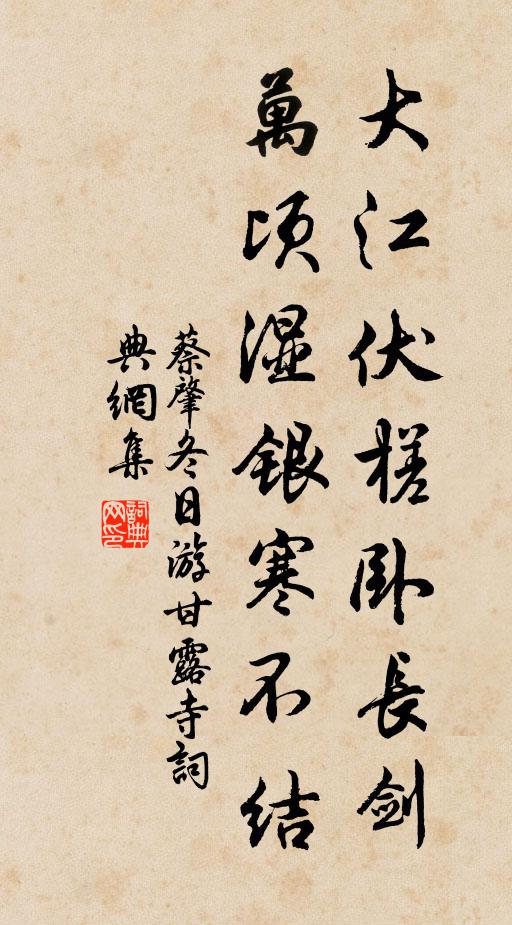 大江伏槎卧長剑
萬顷濕銀寒不结
蔡肇冬日游甘露寺詞
典網集
詞典网印